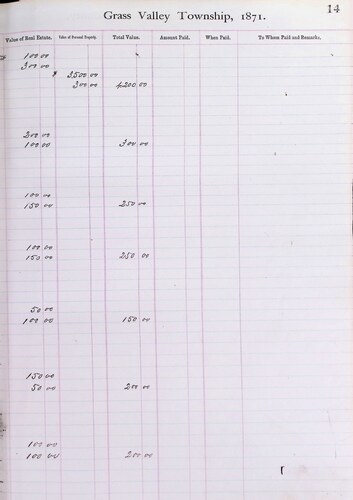 14
Grass Valley Township, 1871.
Value of Real Estate. Value of Personal Property. Total Value. Amount Paid. When Paid. To Whom Paid and Remarks,
100 00
300 00
3,500 00
300 00 4,200 00
200 00
100 00 300 00
100 00
150 00 250 00
100 00
150 00 250 00
50 00
100 00 150 00
150 00
50 00 200 00
100 00
100 00 200 00